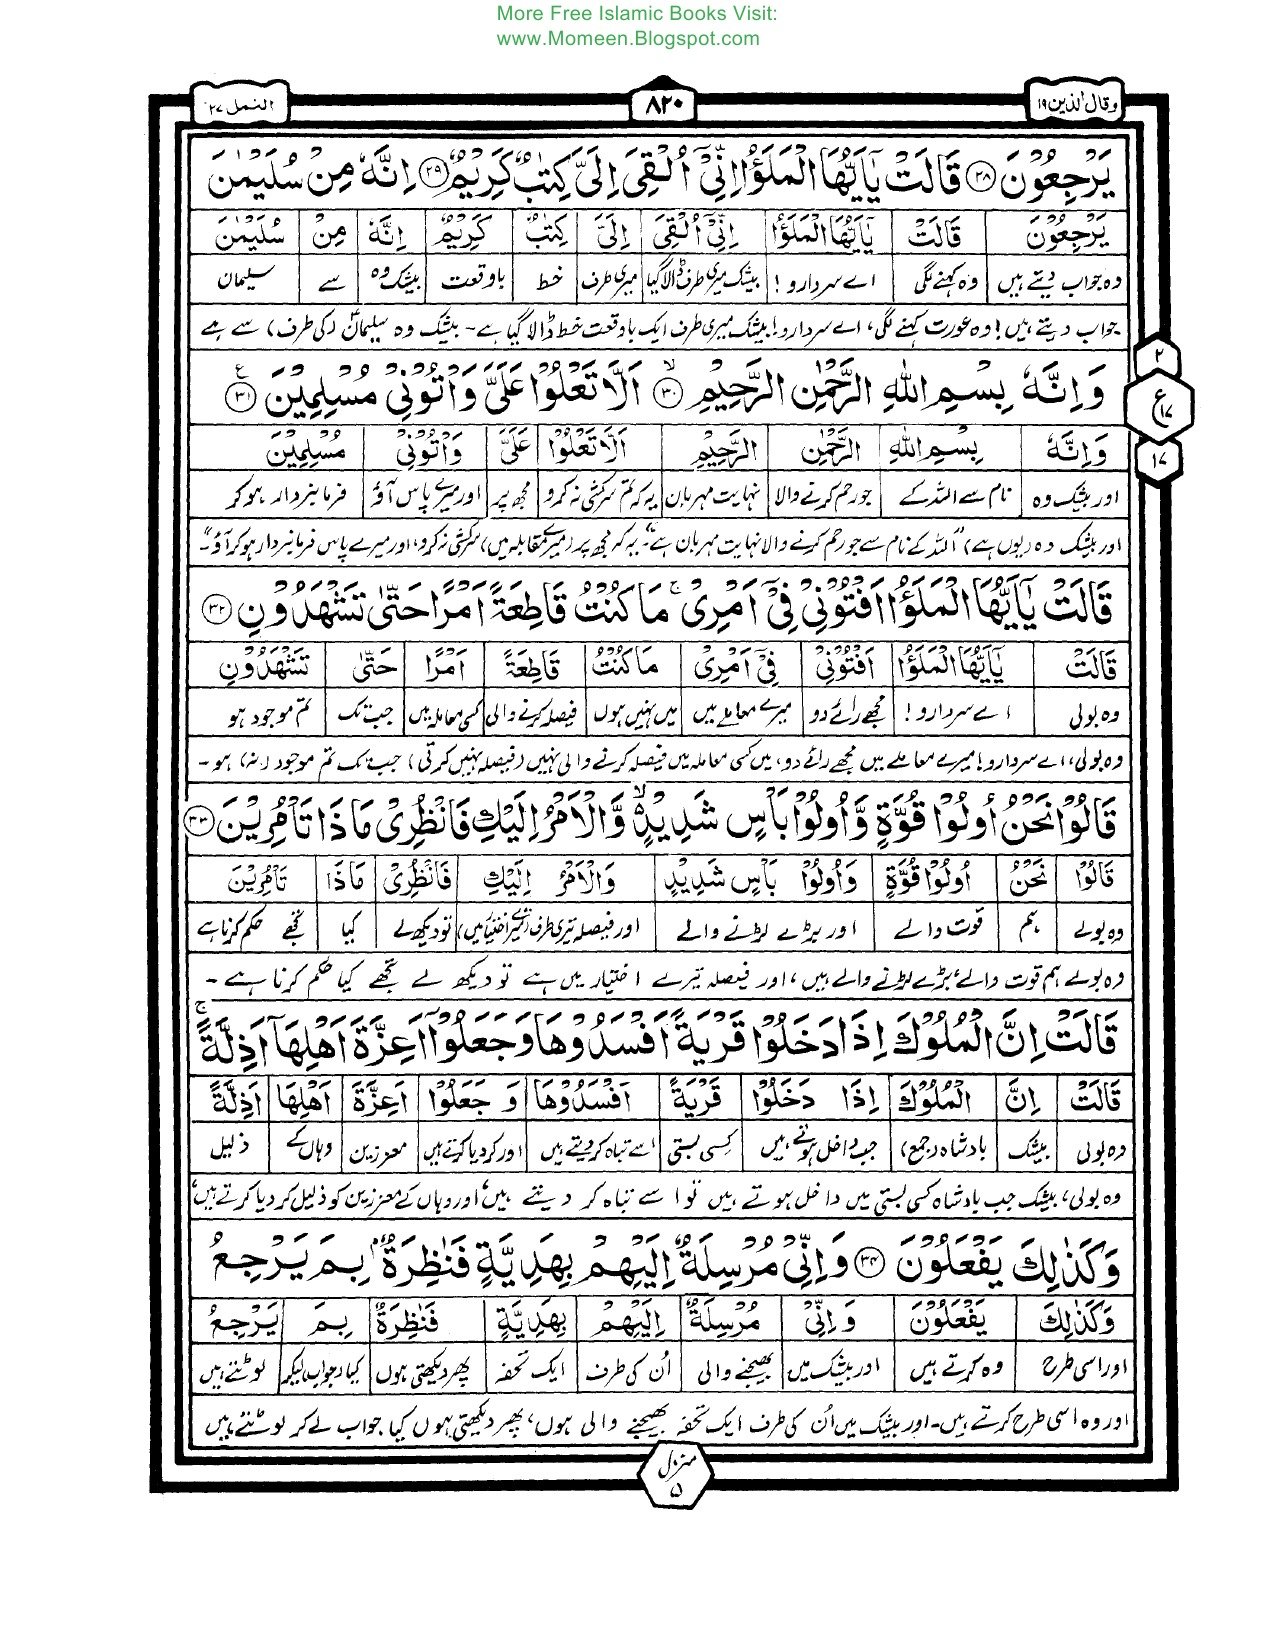 More Free Islamic Books Visit:
www.Momeen.Blogspot.com
وقال الذین ۱۹
۸۲۰
النمل ۲۷
يَرْجِعُوْنَ ۲۸ قَالَتْ يٰٓاَيُّهَا الْمَلَؤُا اِنِّيْٓ اُلْقِيَ اِلَيَّ كِتٰبٌ كَرِيْمٌ ۲۹ اِنَّهٗ مِنْ سُلَيْمٰنَ
يَرْجِعُوْنَ قَالَتْ يٰٓاَيُّهَا الْمَلَؤُا اِنِّيْٓ اُلْقِيَ اِلَيَّ كِتٰبٌ كَرِيْمٌ اِنَّهٗ مِنْ سُلَيْمٰنَ
وہ جواب دیتے ہیں وہ کہنے لگی اے سردارو! بیشک میری طرف ڈالا گیا میری طرف خط باوقعت بیشک وہ سے سلیمان
جواب دیتے ہیں! وہ عورت کہنے لگی، اے سردارو! بیشک میری طرف ایک باوقعت خط ڈالا گیا ہے۔ بیشک وہ سلیمانؑ (کی طرف) سے ہے
وَاِنَّهٗ بِسْمِ اللّٰهِ الرَّحْمٰنِ الرَّحِيْمِ ۙ ۳۰ اَلَّا تَعْلُوْا عَلَيَّ وَاْتُوْنِيْ مُسْلِمِيْنَ ۳۱ ع
۲
ع ۱۷
۱۷
وَاِنَّهٗ بِسْمِ اللّٰهِ الرَّحْمٰنِ الرَّحِيْمِ اَلَّا تَعْلُوْا عَلَيَّ وَاْتُوْنِيْ مُسْلِمِيْنَ
اور بیشک وہ نام سے اللہ کے جو رحم کرنے والا نہایت مہربان یہ کہ تم سرکشی نہ کرو مجھ پر اور میرے پاس آؤ فرمانبردار ہو کر
اور بیشک وہ (یوں ہے) "اللہ کے نام سے جو رحم کرنے والا نہایت مہربان ہے"۔ یہ کہ مجھ پر (میرے مقابلہ میں) سرکشی نہ کرو، اور میرے پاس فرمانبردار ہو کر آؤ"۔
قَالَتْ يٰٓاَيُّهَا الْمَلَؤُا اَفْتُوْنِيْ فِيْٓ اَمْرِيْ ۚ مَا كُنْتُ قَاطِعَةً اَمْرًا حَتّٰى تَشْهَدُوْنِ ۳۲
قَالَتْ يٰٓاَيُّهَا الْمَلَؤُا اَفْتُوْنِيْ فِيْٓ اَمْرِيْ مَا كُنْتُ قَاطِعَةً اَمْرًا حَتّٰى تَشْهَدُوْنِ
وہ بولی اے سردارو! مجھے رائے دو میرے معاملے میں میں نہیں ہوں فیصلہ کرنے والی کسی معاملہ میں جب تک تم موجود ہو
وہ بولی، اے سردارو! میرے معاملے میں مجھے رائے دو، میں کسی معاملہ میں فیصلہ کرنے والی نہیں (فیصلہ نہیں کرتی) جب تک تم موجود (نہ) ہو۔
قَالُوْا نَحْنُ اُولُوْا قُوَّةٍ وَّاُولُوْا بَاْسٍ شَدِيْدٍ ۙ وَّالْاَمْرُ اِلَيْكِ فَانْظُرِيْ مَاذَا تَاْمُرِيْنَ ۳۳
قَالُوْا نَحْنُ اُولُوْا قُوَّةٍ وَاُولُوْا بَاْسٍ شَدِيْدٍ وَالْاَمْرُ اِلَيْكِ فَانْظُرِيْ مَاذَا تَاْمُرِيْنَ
وہ بولے ہم قوت والے اور بڑے لڑنے والے اور فیصلہ تیری طرف (تیرے اختیار میں) تو دیکھ لے کیا تجھے حکم کرنا ہے
وہ بولے ہم قوت والے، بڑے لڑنے والے ہیں، اور فیصلہ تیرے اختیار میں ہے تو دیکھ لے تجھے کیا حکم کرنا ہے۔
قَالَتْ اِنَّ الْمُلُوْكَ اِذَا دَخَلُوْا قَرْيَةً اَفْسَدُوْهَا وَجَعَلُوْٓا اَعِزَّةَ اَهْلِهَآ اَذِلَّةً ۚ
قَالَتْ اِنَّ الْمُلُوْكَ اِذَا دَخَلُوْا قَرْيَةً اَفْسَدُوْهَا وَ جَعَلُوْٓا اَعِزَّةَ اَهْلِهَا اَذِلَّةً
وہ بولی بیشک بادشاہ (جمع) جب داخل ہوتے ہیں کسی بستی اسے تباہ کر دیتے ہیں اور کر دیا کرتے ہیں معززین وہاں کے ذلیل
وہ بولی، بیشک جب بادشاہ کسی بستی میں داخل ہوتے ہیں تو اسے تباہ کر دیتے ہیں، اور وہاں کے معززین کو ذلیل کر دیا کرتے ہیں،
وَكَذٰلِكَ يَفْعَلُوْنَ ۳۴ وَاِنِّيْ مُرْسِلَةٌ اِلَيْهِمْ بِهَدِيَّةٍ فَنٰظِرَةٌۢ بِمَ يَرْجِعُ
وَكَذٰلِكَ يَفْعَلُوْنَ وَاِنِّيْ مُرْسِلَةٌ اِلَيْهِمْ بِهَدِيَّةٍ فَنٰظِرَةٌ بِمَ يَرْجِعُ
اور اسی طرح وہ کرتے ہیں اور بیشک میں بھیجنے والی اُن کی طرف ایک تحفہ پھر دیکھتی ہوں کیا (جواب) لیکر لوٹتے ہیں
اور وہ اسی طرح کرتے ہیں۔ اور بیشک میں اُن کی طرف ایک تحفہ بھیجنے والی ہوں، پھر دیکھتی ہوں کیا جواب لے کر لوٹتے ہیں
منزل ۵